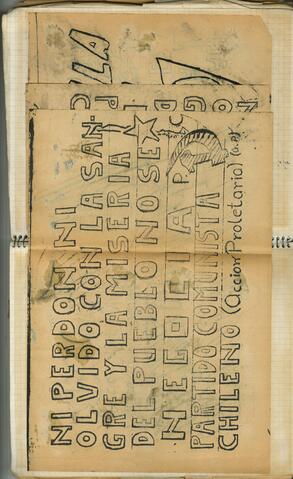 NI PERDON NI
OLVIDO CON LA SAN-
GRE Y LA MISERIA
DEL PUEBLO NO SE
NEGOCIA
A.P.
PARTIDO COMUNISTA
CHILENO (acción Proletaria (a.p)